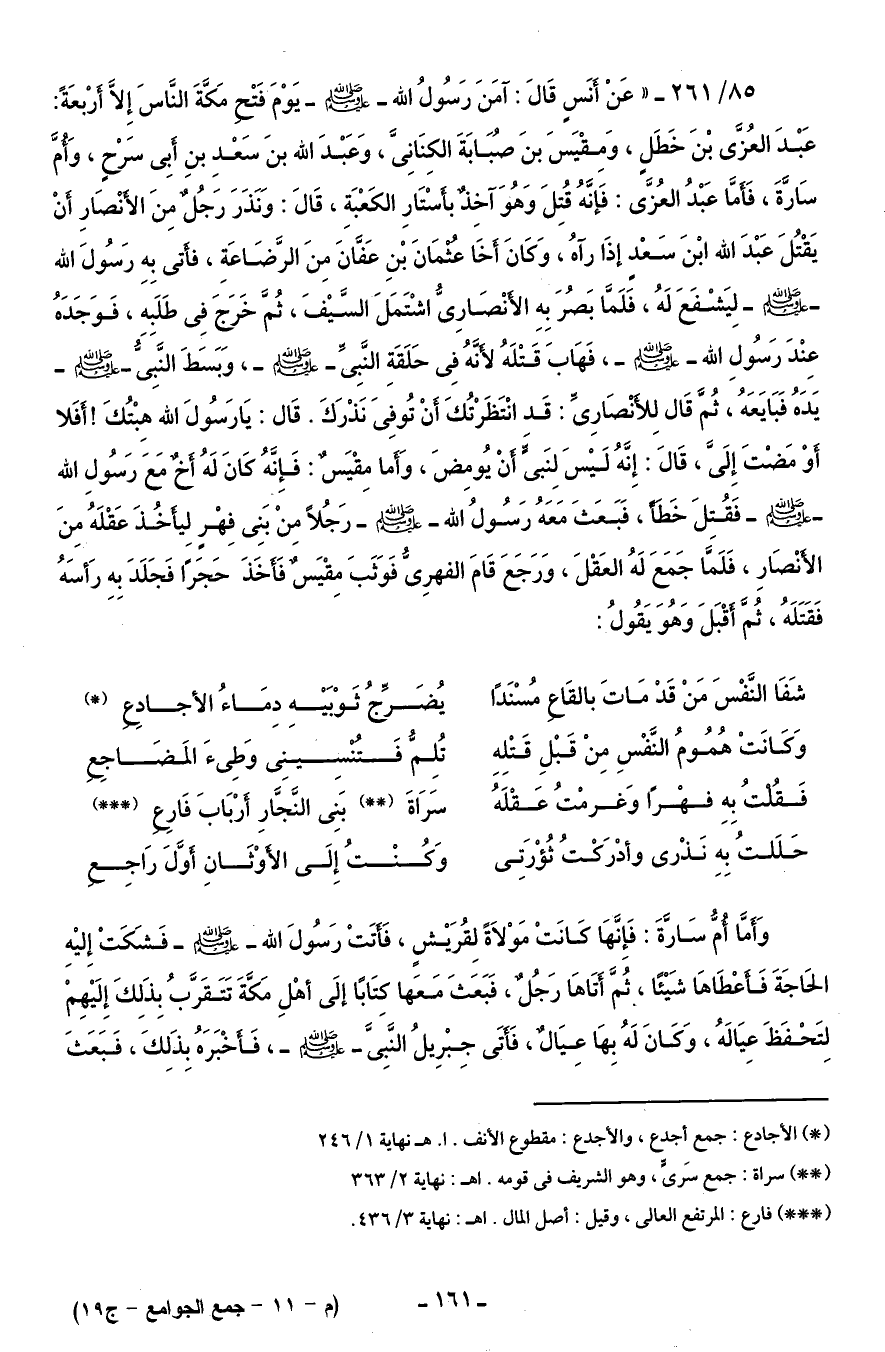 ٨٥/ ٢٦١ ـ « عَنْ أَنَسٍ قَالَ : آمَنَ رَسُولُ الله ـ ﷺ ـ يَوْمَ فَتْحِ مَكَّةَ النَّاسَ إِلاَّ أَرْبَعَةً :
عَبْدَ العُزَّى بْنَ خَطَلٍ ، وَمِقْيَسَ بن صُبَابَةَ الكِنَانِىَّ ، وَعَبْدَ الله بنَ سَعْدِ بنِ أَبِى سَرْحٍ ، وَأُمَّ
سَارَّةَ ، فَأَمَّا عَبْدُ العُزَّى : فَإِنَّهُ قُتِلَ وَهُوَ آخِذٌ بِأَسْتَارِ الكَعْبَةِ ، قَالَ : وَنَذَرَ رَجُلٌ مِنَ الأَنْصَارِ أَنْ
يَقْتُلَ عَبْدَ الله ابْنَ سَعْدٍ إِذَا رآهُ ، وَكَانَ أَخَا عُثْمَانَ بْنِ عَفَّانَ مِنَ الرَّضَاعَةِ ، فَأتَى بِهِ رَسُولَ الله
ـ ﷺ ـ لِيَشْفَعَ لَهُ ، فَلَمَّا بَصُرَ بِهِ الأَنْصَارِىُّ اشْتَمَلَ السَّيْفَ ، ثُمَّ خَرَجَ فِى طَلَبِهِ ، فَوَجَدَهُ
عِنْدَ رَسُولِ الله ـ ﷺ ـ ، فَهَابَ قَتْلَهُ لأَنَّهُ فِى حَلَقَةِ النَّبِىِّ ـ ﷺ ـ ، وَبَسَطَ النَّبِىُّ ـ ﷺ ـ
يَدَهُ فَبَايَعَهُ ، ثُمَّ قَال لِلأَنْصَارِىِّ : قَد انْتَظَرْتُكَ أَنْ تُوفِىَ نَذْرَكَ . قَال : يَارَسُولَ الله هِبْتُكَ ! أَفَلا
أَوْ مَضْتَ إِلَىَّ ، قَالَ : إِنَّهُ لَيْسَ لِنَبِىٍّ أَنْ يُومِضَ ، وَأَما مِقْيَسٌ : فَإِنَّهُ كَانَ لَهُ أَخٌ مَعَ رَسُولِ الله
ـ ﷺ ـ فَقُتِلَ خَطَأً ، فَبَعَثَ مَعَهُ رَسُولُ الله ـ ﷺ ـ رَجُلاً مِنْ بَنِى فِهْرٍ لِيَأخُذَ عَقْلَهُ مِنَ
الأَنْصَارِ ، فَلَمَّا جَمَعَ لَهُ العَقْلَ ، وَرَجَعَ قَامَ الفِهرِىُّ فَوَثَبَ مِقْيَسٌ فَأَخَذَ حَجَرًا فَجَلَدَ بِهِ رَأسَهُ
فَقَتَلَهُ ، ثُمَّ أَقْبَلَ وَهُوَ يَقُولُ :
شَفَا النَّفْسَ مَنْ قَدْ مَاتَ بِالقَاعِ مُسْنَدًا يُضَرِّجُ ثَوْبَيْهِ دِمَاءُ الأجَادِعِ (*)
وَكَانَتْ هُمُومُ النَّفْسِ مِنْ قَبْلِ قَتْلِهِ تُلِمُّ فَتُنْسِينِى وَطِىءَ المَضَاجِعِ
فَقُلْتُ بِهِ فِهْرًا وَغَرِمْتُ عَقْلَهُ سَرَاةَ (**) بَنِى النَّجَّارِ أَرْبَابَ فَارِعِ (***)
حَلَلتُ بِهِ نَذْرِى وأدْرَكْتُ ثُؤْرَتِى وَكُنْتُ إِلَى الأَوْثَانِ أَوَّلَ رَاجِعِ
وَأَمَّا أُمُّ سَارَّةَ : فَإِنَّهَا كَانَتْ مَوْلاَةً لِقُرَيْشٍ ، فَأَتَتْ رَسُولَ الله ـ ﷺ ـ فَشكَتْ إِلَيْهِ
الحَاجَةَ فَأَعْطَاهَا شَيْئًا ، ثُمَّ أَتَاهَا رَجُلٌ ، فَبَعَثَ مَعَها كِتَابًا إِلَى أَهْلِ مَكَّةَ تَتَقَرَّبُ بِذَلِكَ إِلَيْهِمْ
لِتَحْفَظَ عِيَالَهُ ، وَكَانَ لَهُ بِهَا عِيَالٌ ، فَأَتَى جِبْرِيلُ النَّبِىَّ ـ ﷺ ـ ، فَأَخْبَرَهُ بِذَلِكَ ، فَبَعَثَ
(*) الأجادع : جمع أجدع ، والأجدع : مقطوع الأنف . ا. هـ نهاية ١/ ٢٤٦
(**) سراة : جمع سَرِىٍّ ، وهو الشريف فى قومه . اهـ : نهاية ٢/ ٣٦٣
(***) فارع : المرتفع العالى ، وقيل : أصل المال . اهـ : نهاية ٣/ ٤٣٦.
ـ ١٦١ ـ
(م - ١١ - جمع الجوامع - ج١٩)